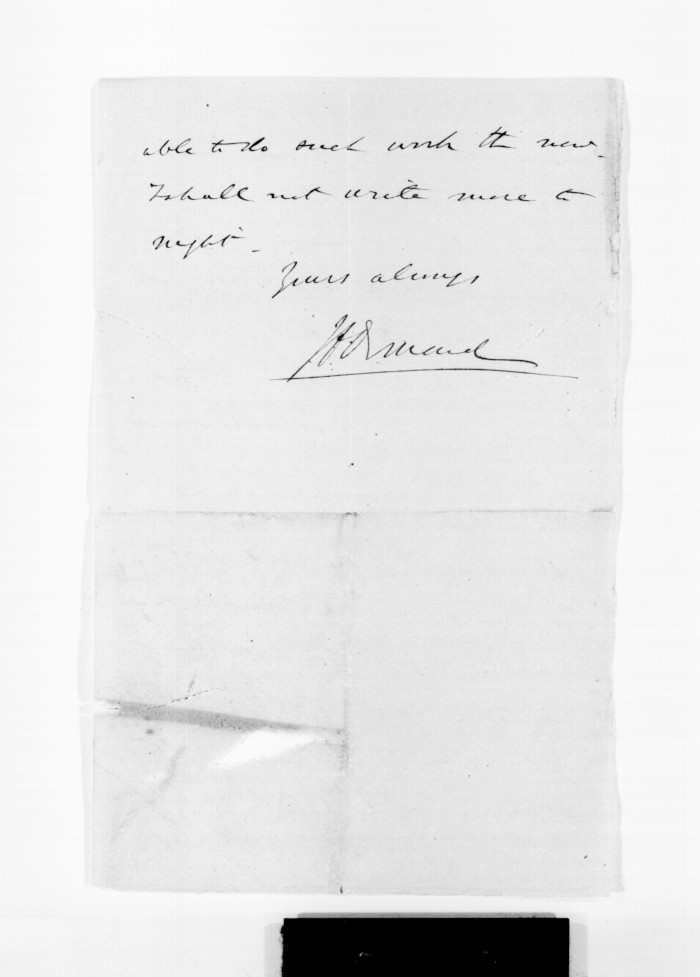 able to do such work then now.
I shall not write more to
night.
Yours always
J D Ormond